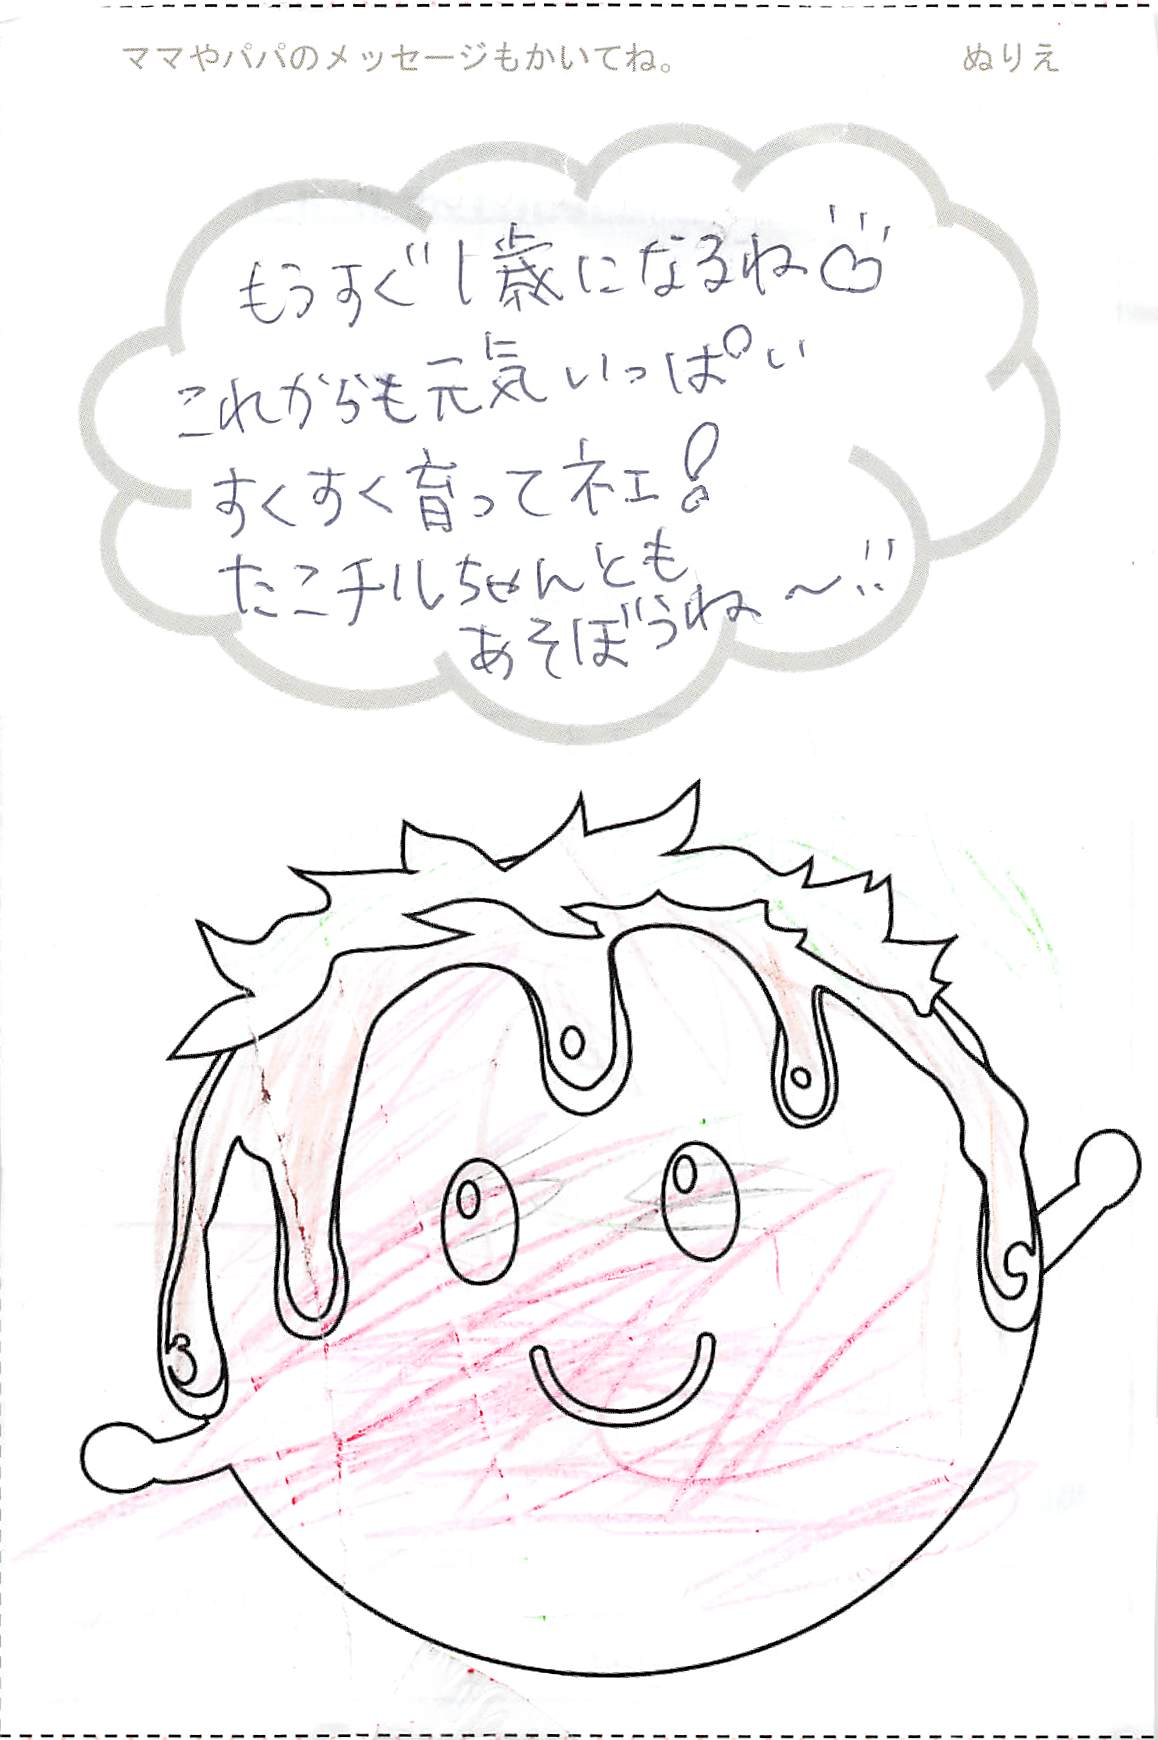 ママやパパのメッセージもかいてね。 ぬりえ
もうすぐ1歳になるね♡
これからも元気いっぱい
すくすく育ってネェ!
たこチルちゃんとも
あそぼうね〜!!